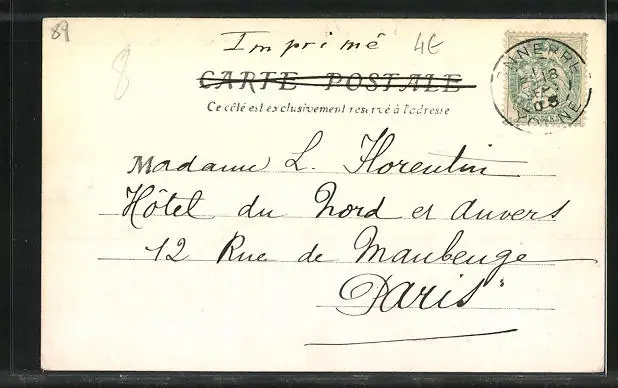 89
Imprimé 4E
8
CARTE POSTALE
Ce côté est exclusivement reservé à l'adresse
Madame L. Florentin
Hôtel du Nord et Anvers
12 Rue de Maubeuge
Paris
TONNERRE
YONNE